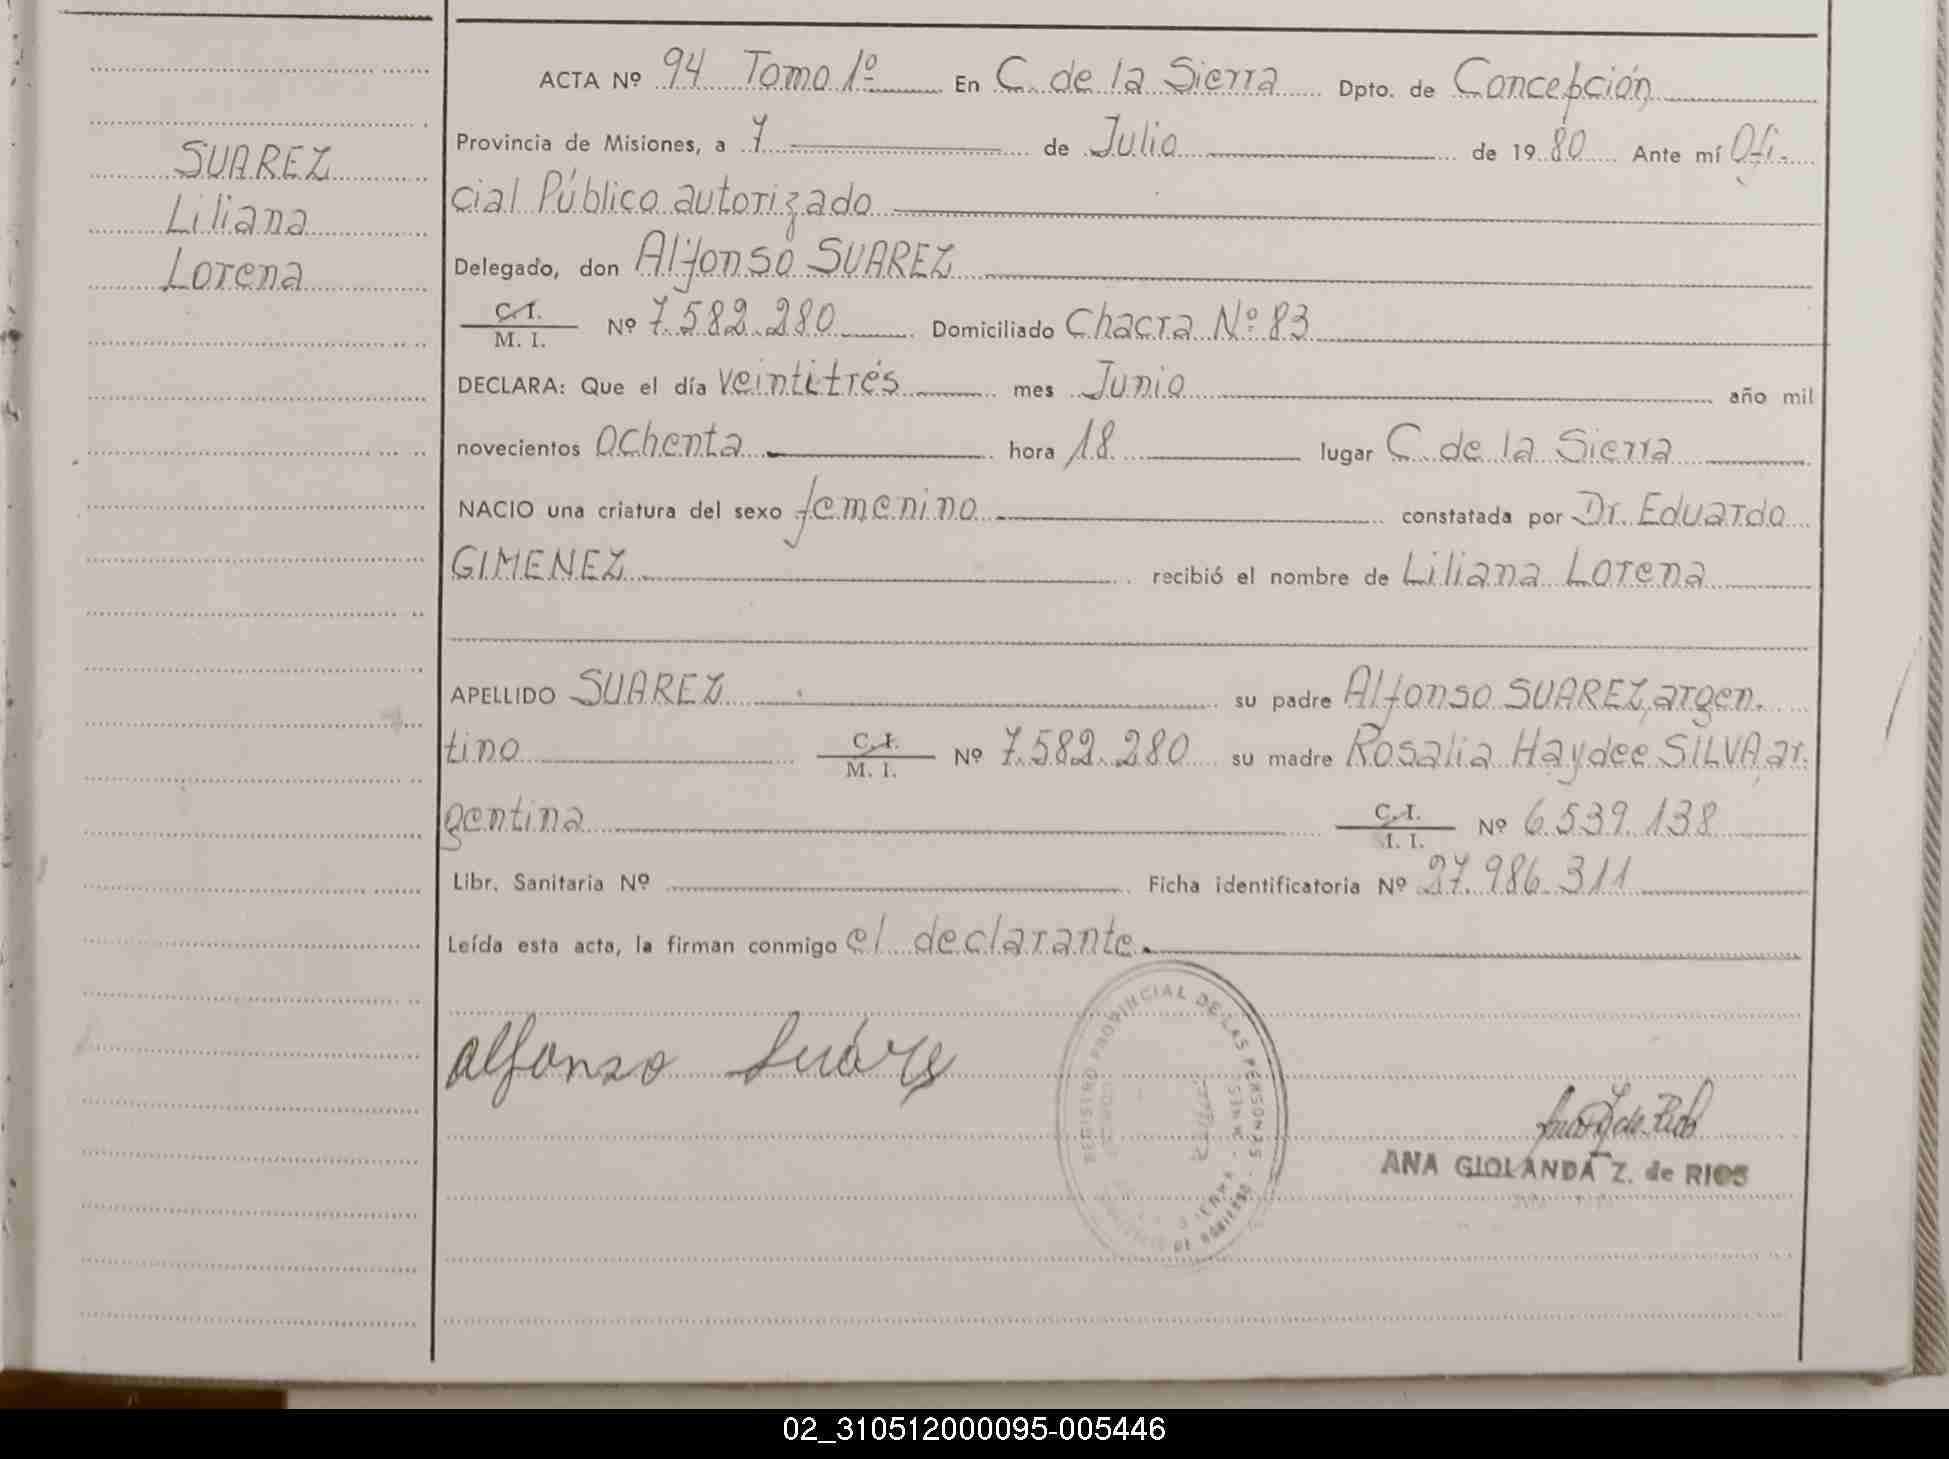 SUAREZ
Liliana
Lorena
ACTA Nº 94 Tomo 1º En C. de la Sierra Dpto. de Concepción
Provincia de Misiones, a 7 de Julio de 1980 Ante mí Ofi-
cial Público autorizado
Delegado, don Alfonso SUAREZ
C. I.
M. I. Nº 7.582.280 Domiciliado Chacra Nº 83
DECLARA: Que el día veintitrés mes Junio año mil
novecientos ochenta hora 18 lugar C. de la Sierra
NACIO una criatura del sexo femenino constatada por Dr. Eduardo
GIMENEZ recibió el nombre de Liliana Lorena
APELLIDO SUAREZ su padre Alfonso SUAREZ, argen-
tino C. I. M. I. Nº 7.582.280 su madre Rosalia Haydee SILVA, ar-
gentina C. I. I. I. Nº 6.539.138
Libr. Sanitaria Nº Ficha identificatoria Nº 27.986.311
Leída esta acta, la firman conmigo el declarante.
Alfonso Suárez
REGISTRO PROVINCIAL DE LAS PERSONAS
ANA GIOLANDA Z. de RIOS
02_310512000095-005446